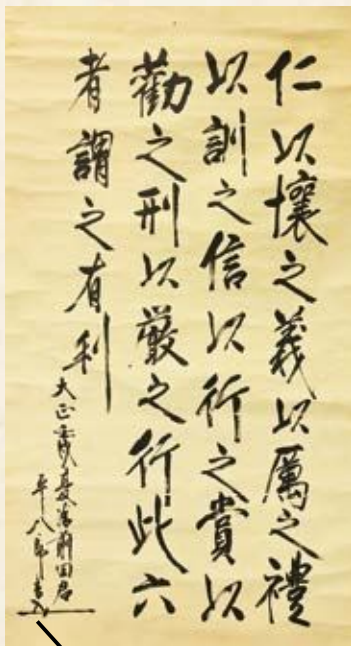 仁以懷之義以厲之禮
以訓之信以行之賞以
勸之刑以嚴之行此六
者謂之有利
大正 夏為前田君
平八郎書